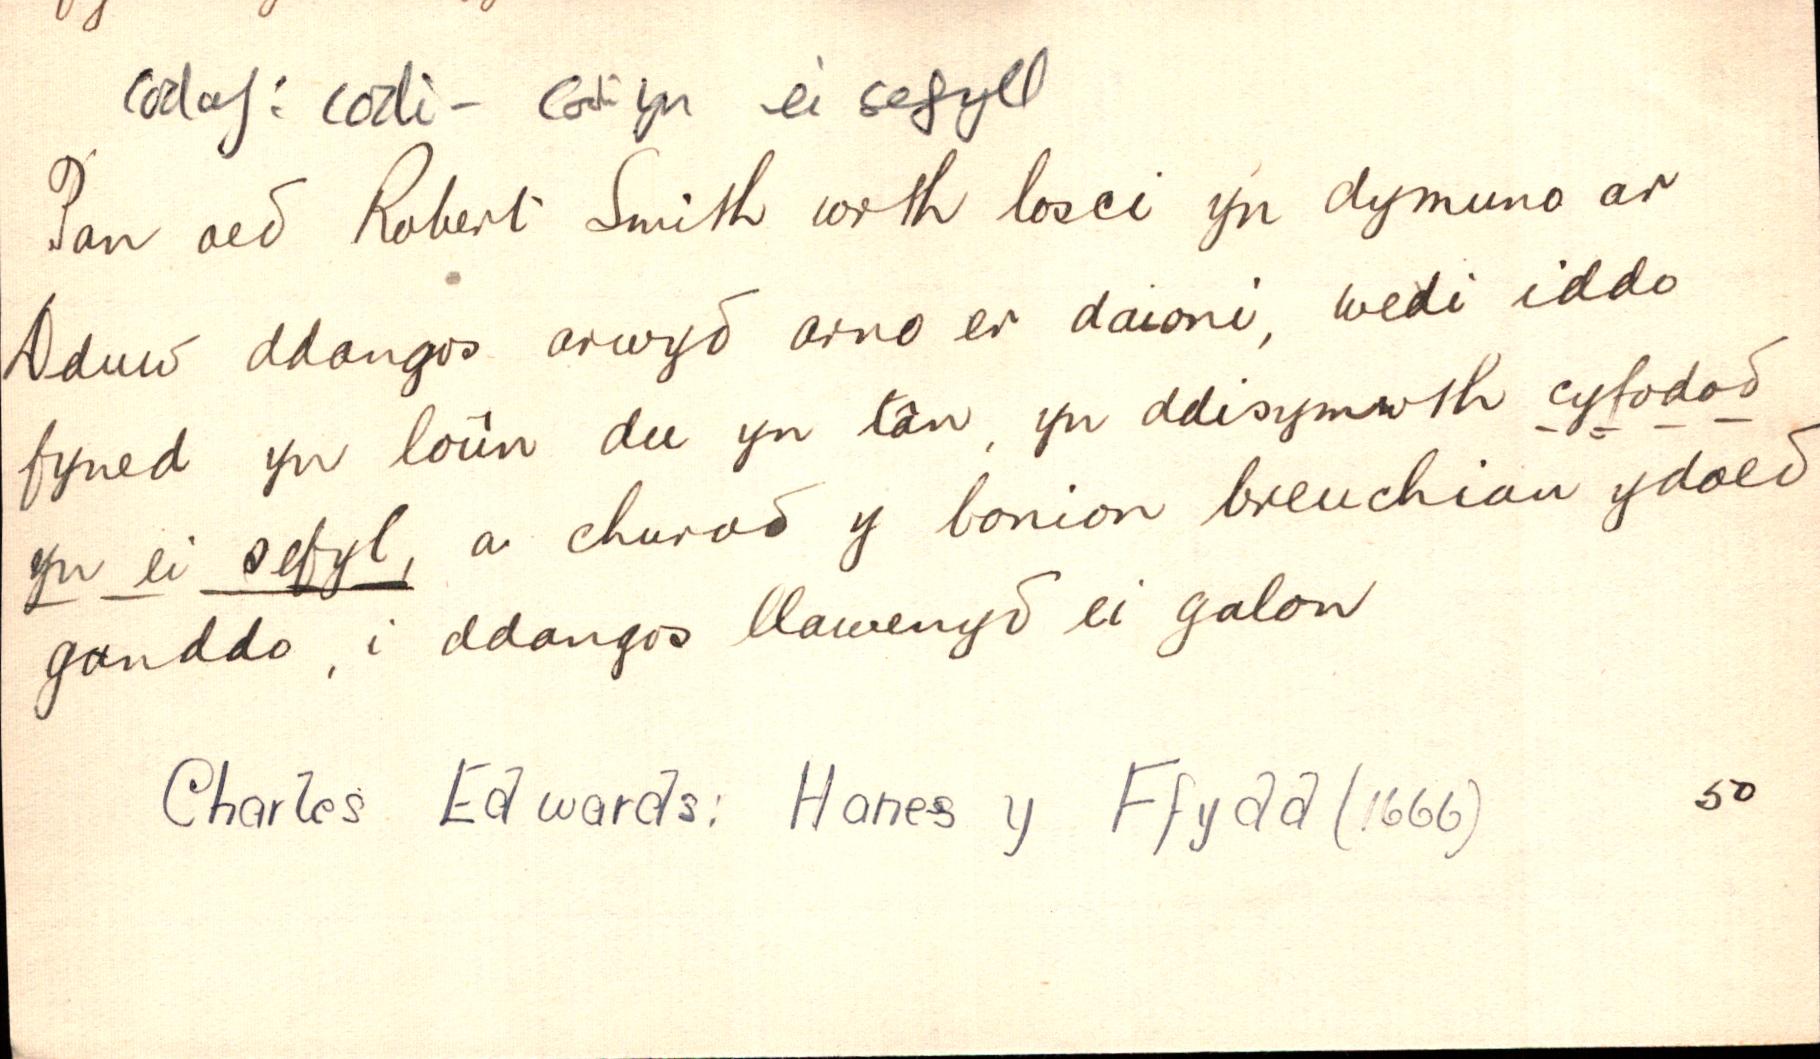 codaf: codi - codi yn ei sefyll
Pan oeð Robert Smith wrth losci yn dymuno ar
Dduw ddangos arwyð arno er daioni, wedi iddo
fyned yn loûn du yn tân, yn ddisymwth cyfodoð
yn ei sefyl, a churoð y bonion breuchiau ydoeð
ganddo, i ddangos llawenyð ei galon
Charles Edwards: Hanes y Ffydd (1666) 50